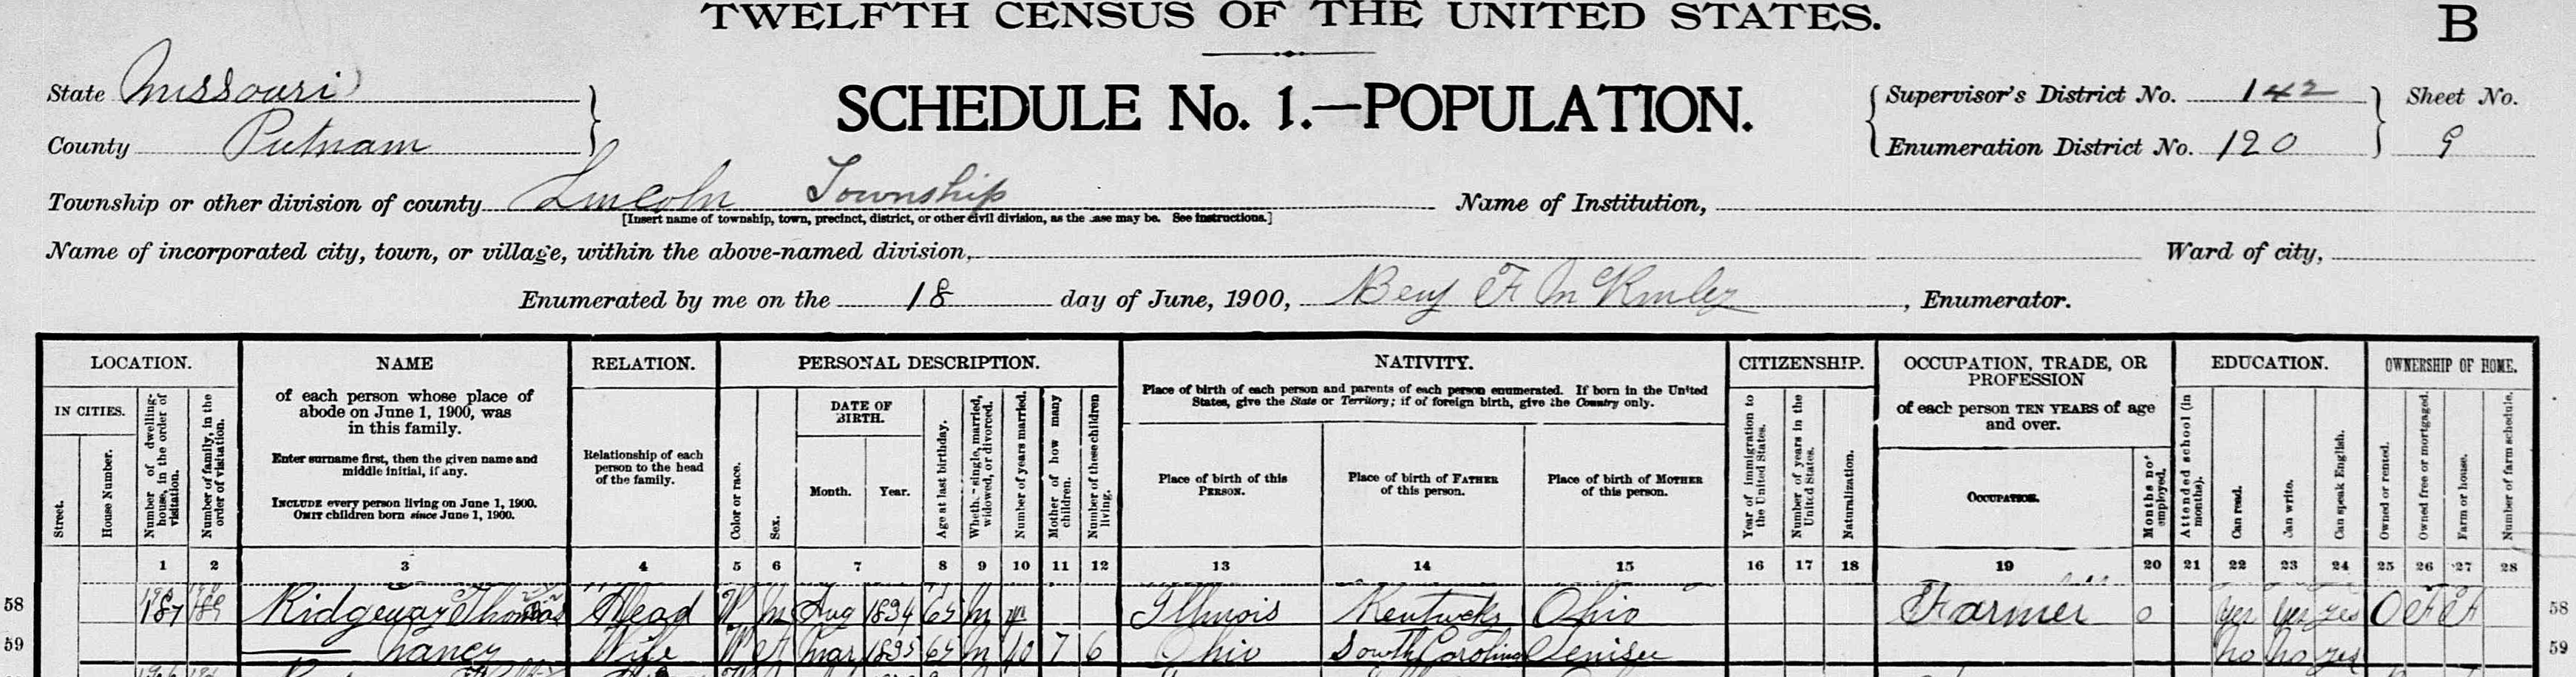 TWELFTH CENSUS OF THE UNITED STATES.
B
SCHEDULE No. 1.—POPULATION.
State Missouri
County Putnam
Supervisor's District No. 142
Enumeration District No. 120
Sheet No.
9
Township or other division of county Lincoln Township
[Insert name of township, town, precinct, district, or other civil division, as the case may be. See instructions.]
Name of Institution,
Name of incorporated city, town, or village, within the above-named division,
Ward of city,
Enumerated by me on the 18 day of June, 1900, Benj F McKinley, Enumerator.
LOCATION.
IN CITIES.
Street.
House Number.
Number of dwelling-house, in the order of visitation.
Number of family, in the order of visitation.
NAME
of each person whose place of
abode on June 1, 1900, was
in this family.
Enter surname first, then the given name and
middle initial, if any.
INCLUDE every person living on June 1, 1900.
OMIT children born since June 1, 1900.
RELATION.
Relationship of each
person to the head
of the family.
PERSONAL DESCRIPTION.
Color or race.
Sex.
DATE OF
BIRTH.
Month.
Year.
Age at last birthday.
Whether single, married, widowed, or divorced.
Number of years married.
Mother of how many children.
Number of these children living.
NATIVITY.
Place of birth of each person and parents of each person enumerated. If born in the United
States, give the State or Territory; if of foreign birth, give the Country only.
Place of birth of this
PERSON.
Place of birth of FATHER
of this person.
Place of birth of MOTHER
of this person.
CITIZENSHIP.
Year of immigration to the United States.
Number of years in the United States.
Naturalization.
OCCUPATION, TRADE, OR
PROFESSION
of each person TEN YEARS of age
and over.
OCCUPATION.
Months not employed.
EDUCATION.
Attended school (in months).
Can read.
Can write.
Can speak English.
OWNERSHIP OF HOME.
Owned or rented.
Owned free or mortgaged.
Farm or house.
Number of farm schedule.
1 2 3 4 5 6 7 8 9 10 11 12 13 14 15 16 17 18 19 20 21 22 23 24 25 26 27 28
58 187 189 Ridgeway Thomas Head W M Aug 1834 65 M Illinois Kentucky Ohio Farmer 0 yes yes yes O F F 58
59 Nancy Wife W F Mar 1835 65 M 40 7 6 Ohio South Carolina no no yes 59